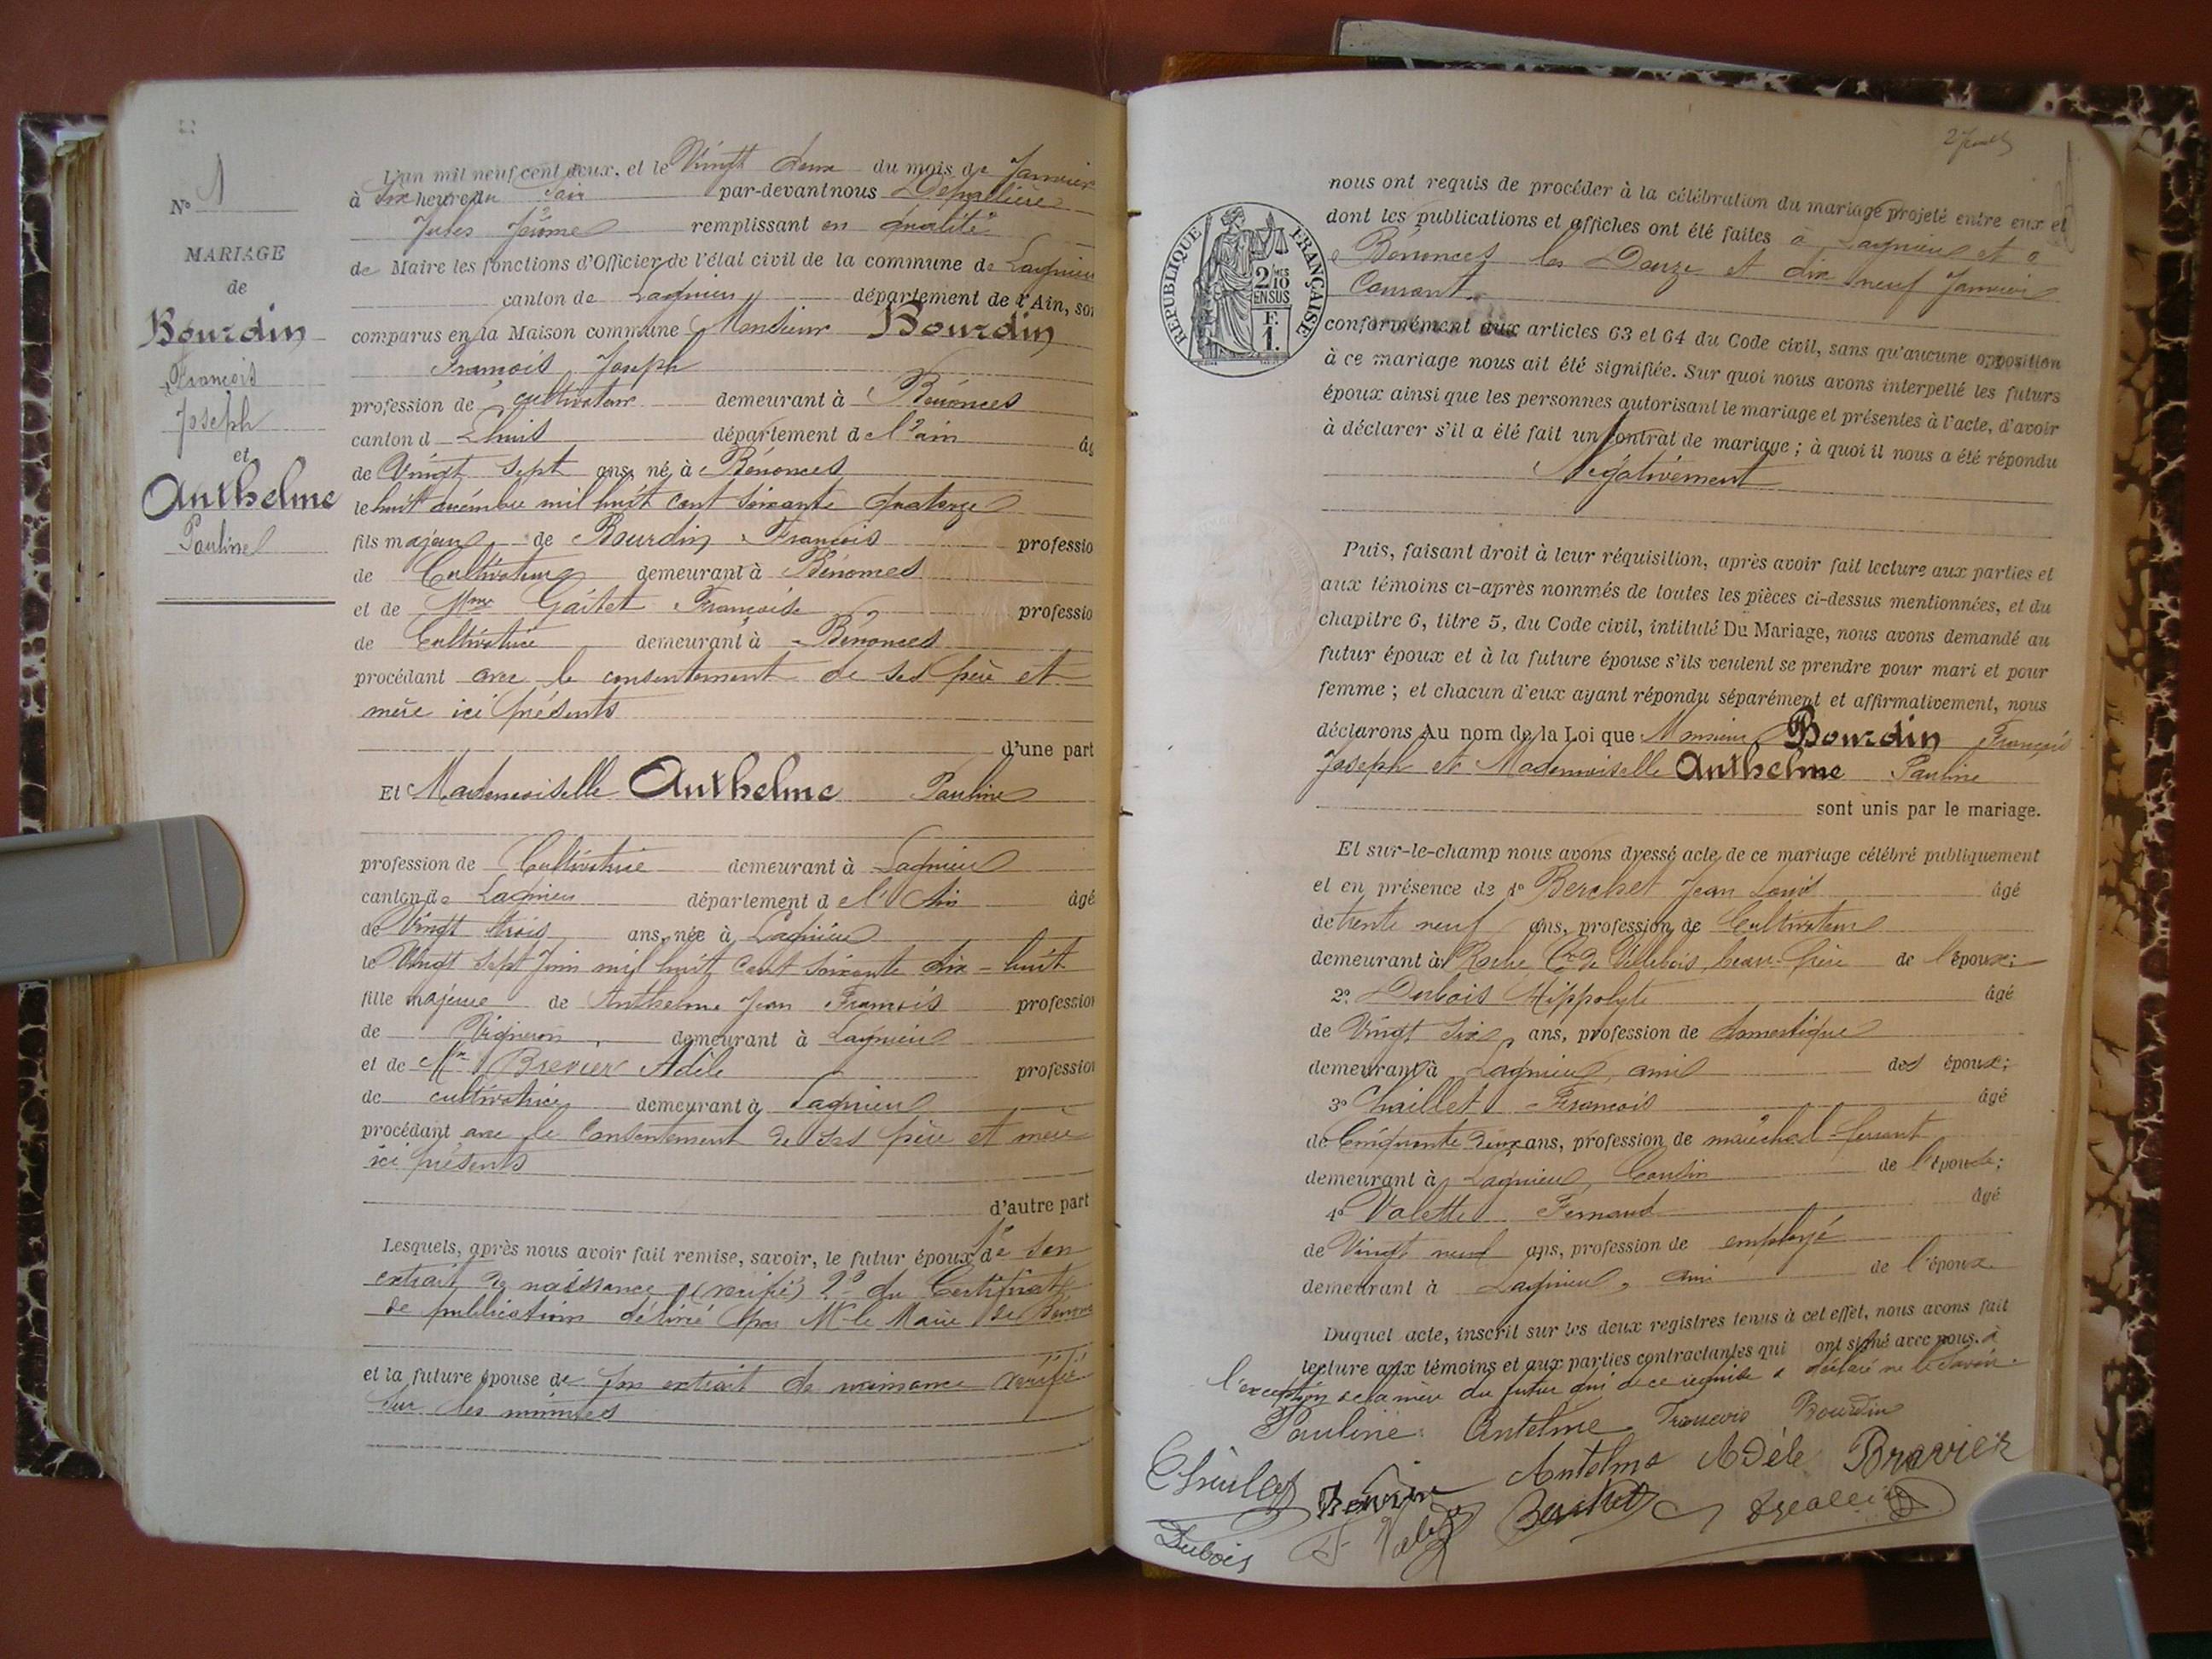 N° 1
MARIAGE
de
Bourdin
François
Joseph
et
Anthelme
Pauline
L'an mil neuf cent deux, et le Vingt deux du mois de Janvier
à Six heure du Soir par-devant nous
Jules Jérôme remplissant en qualité
de Maire les fonctions d'Officier de l'état civil de la commune de Lagnieu
canton de Lagnieu département de l'Ain, son
comparus en la Maison commune Monsieur Bourdin
François Joseph
profession de cultivateur demeurant à Bénonces
canton d Lhuis département de l'ain âg
de Vingt sept ans, né à Bénonces
le huit décembre mil huit cent soixante quatorze
fils majeur de Bourdin François professio
de Cultivateur demeurant à Bénonces
et de Mme Gaitet Françoise professio
de Cultivatrice demeurant à Bénonces
procédant avec le consentement de ses père et
mère ici présents
d'une part
Et Mademoiselle Anthelme Pauline
profession de Cultivatrice demeurant à Lagnieu
canton de Lagnieu département de l'Ain âgé
de Vingt trois ans, née à Lagnieu
le Vingt sept Juin mil huit cent soixante dix-huit
fille majeure de Anthelme Jean François profession
de Vigneron demeurant à Lagnieu
et de Me Brevier Adèle profession
de cultivatrice demeurant à Lagnieu
procédant avec le consentement de ses père et mère
ici présents
d'autre part
Lesquels, après nous avoir fait remise, savoir, le futur époux 1° de son
extrait de naissance (vérifié) 2° du Certificat
de publication délivré par Mr le Maire de
et la future épouse de son extrait de naissance vérifié
sur les minutes
REPUBLIQUE FRANÇAISE
2/10 MES
EN SUS
F.
1.
nous ont requis de procéder à la célébration du mariage projeté entre eux et
dont les publications et affiches ont été faites à Lagnieu et à
Bénonces les Douze et dix neuf Janvier
Courant
conformément aux articles 63 et 64 du Code civil, sans qu'aucune opposition
à ce mariage nous ait été signifiée. Sur quoi nous avons interpellé les futurs
époux ainsi que les personnes autorisant le mariage et présentes à l'acte, d'avoir
à déclarer s'il a été fait un contrat de mariage ; à quoi il nous a été répondu
Négativement
Puis, faisant droit à leur réquisition, après avoir fait lecture aux parties et
aux témoins ci-après nommés de toutes les pièces ci-dessus mentionnées, et du
chapitre 6, titre 5, du Code civil, intitulé Du Mariage, nous avons demandé au
futur époux et à la future épouse s'ils veulent se prendre pour mari et pour
femme ; et chacun d'eux ayant répondu séparément et affirmativement, nous
déclarons Au nom de la Loi que Monsieur Bourdin François
Joseph et Mademoiselle Anthelme Pauline
sont unis par le mariage.
Et sur-le-champ nous avons dressé acte de ce mariage célébré publiquement
et en présence de 1° Berchet Jean Louis âgé
de trente neuf ans, profession de Cultivateur
demeurant à Roche Cne de Villebois, beau-frère de l'époux;
2° Dubois Hippolyte âgé
de Vingt six ans, profession de domestique
demeurant à Lagnieu, ami des époux;
3° Chaillet François âgé
de Cinquante deux ans, profession de maréchal-ferrant
demeurant à Lagnieu, Cousin de l'épouse;
4° Valette Fernand âgé
de Vingt neuf ans, profession de employé
demeurant à Lagnieu, ami de l'époux
Duquel acte, inscrit sur les deux registres tenus à cet effet, nous avons fait
lecture aux témoins et aux parties contractantes qui ont signé avec nous. à
l'exception de la mère du futur qui de ce requise a déclaré ne le savoir.
Pauline Antelme François Bourdin
Bourdin Antelme Adèle Bravier
Berchet
Dubois